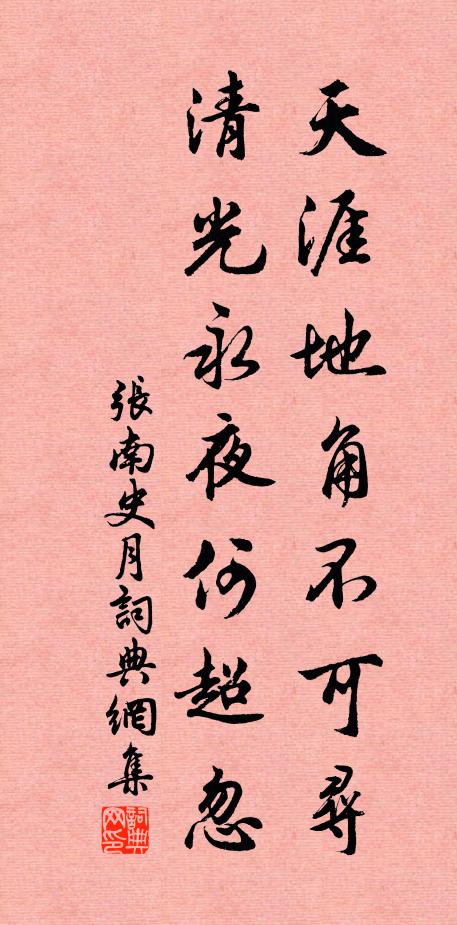 天涯地角不可尋
清光永夜何超忽
張南史月詞典網集
詞典网印